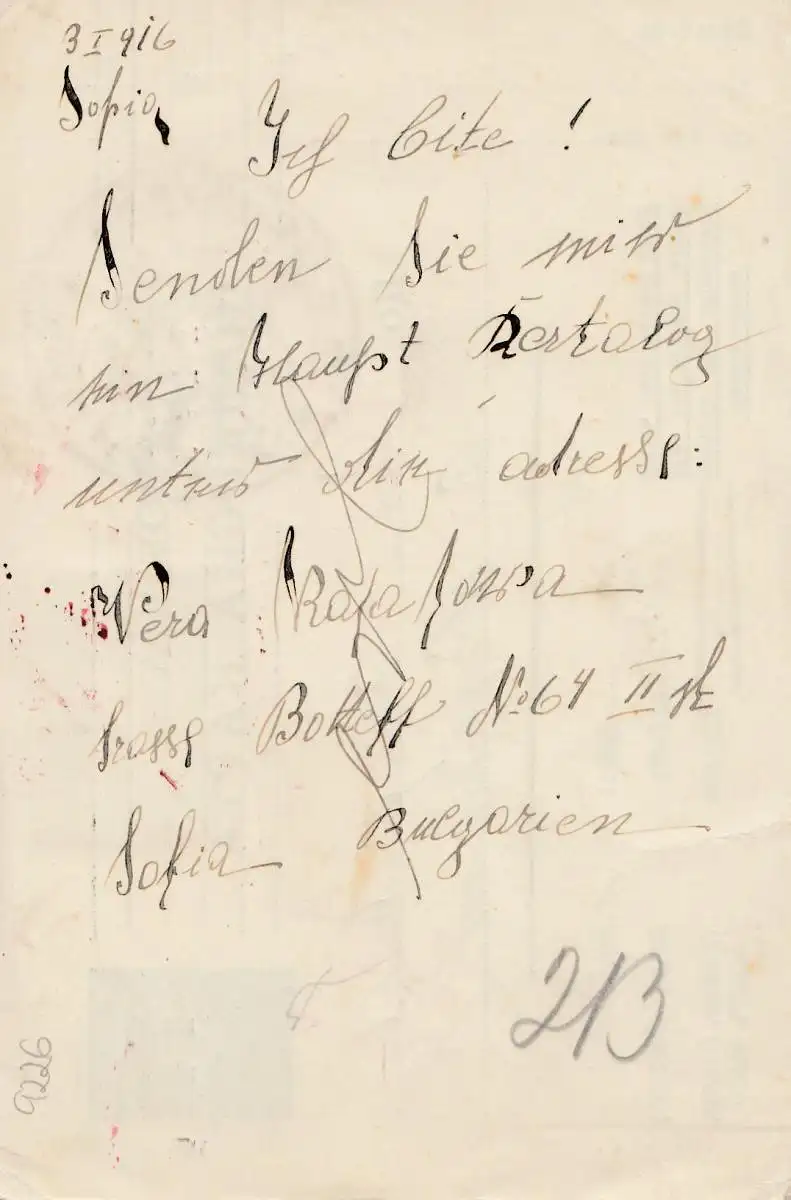 3 I 916
Sofia,
Ich bite !
Senden Sie mier
ein Haupt Kertalog
unter die adresse:
Wera
srasse Botteff № 64 II st
Sofia Bulgarien
213
9226